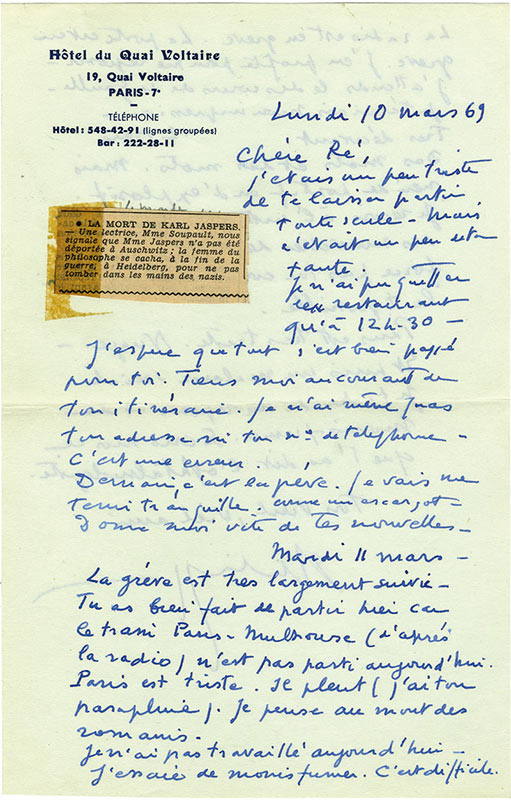 Hôtel du Quai Voltaire
19, Quai Voltaire
PARIS-7e
TÉLÉPHONE
Hôtel : 548-42-91 (lignes groupées)
Bar : 222-28-11
Lundi 10 mars 69
Chère Ré,
j'étais un peu triste
de te laisser partir
toute seule - mais
c'était un peu de ta
faute.
Je n'ai pu quitter
le restaurant
qu'à 12h-30 -
● LA MORT DE KARL JASPERS.
— Une lectrice, Mme Soupault, nous
signale que Mme Jaspers n'a pas été
déportée à Auschwitz ; la femme du
philosophe se cacha, à la fin de la
guerre, à Heidelberg, pour ne pas
tomber dans les mains des nazis.
J'espère que tout s'est bien passé
pour toi. Tiens moi au courant de
ton itinéraire. Je n'ai même pas
ton adresse ni ton no de téléphone -
C'est une erreur.
Demain, c'est la grève. Je vais me
tenir tranquille comme un escargot -
Donne moi vite de tes nouvelles -
Mardi 11 mars -
La grève est très largement suivie -
Tu as bien fait de partir hier car
le train Paris-Mulhouse (d'après
la radio) n'est pas parti aujourd'hui.
Paris est triste. Il pleut (j'ai ton
parapluie). Je pense au mont des
romains.
Je n'ai pas travaillé aujourd'hui -
J'essaie de moins fumer. C'est difficile.